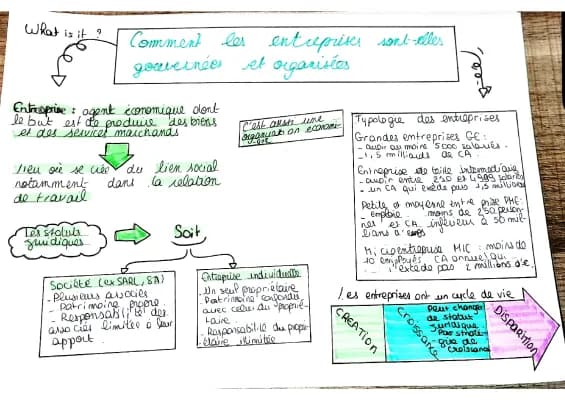 What is it ?
Comment les entreprises sont-elles
gouvernées et organisées
Entreprise : agent économique dont
le but est de produire des biens
et des services marchands
C'est aussi une
organisation économi-
que
lieu où se crée du lien social
notamment dans la relation
de travail
Les statuts
juridiques
Soit
Société (ex SARL, SA)
- Plusieurs associés
- Patrimoine propre
- Responsabilité des
associés limitée à leur
apport
Entreprise individuelle
- Un seul propriétaire
- Patrimoine confondu
avec celui du proprié-
taire
- Responsabilité du propri-
étaire illimitée
Typologie des entreprises
Grandes entreprises GE :
- avoir au moins 5000 salariés
- 1,5 milliards de CA
Entreprise de taille intermédiaire
- avoir entre 250 et 4999 salariés
- un CA qui excède pas 1,5 milliards
Petite et moyenne entreprise PME :
- emploie moins de 250 person-
nes et CA inférieur à 50 mil-
lions d'euros
Microentreprise MIC : moins de
10 employés CA annuel qui
n'excède pas 2 millions d'€
Les entreprises ont un cycle de vie
CREATION
Croissance
Peut changer
de statut
juridique
Par straté-
gie de
croissance
DISPARITION